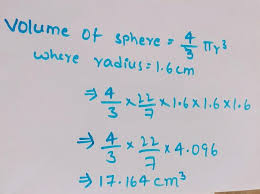 Volume of sphere = 4/3 πr³
where radius = 1.6cm
⇒ 4/3 × 22/7 × 1.6 × 1.6 × 1.6
⇒ 4/3 × 22/7 × 4.096
⇒ 17.164 cm³